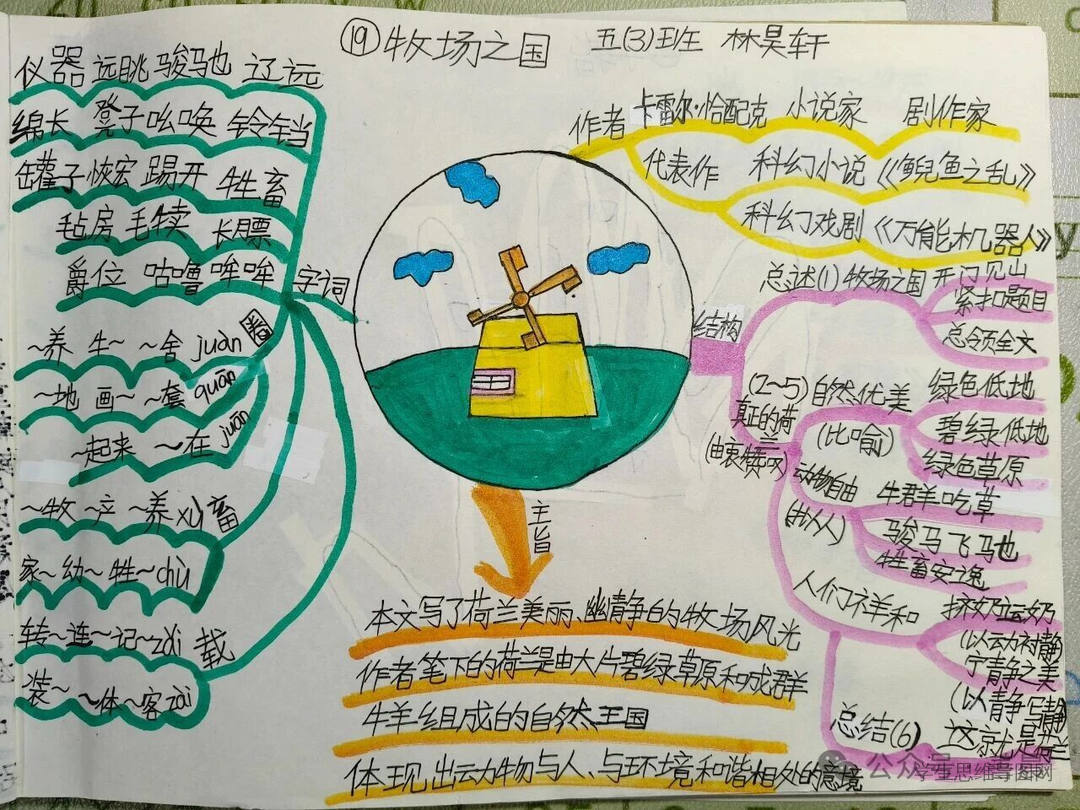 ⑲牧场之国 五(3)班 林昊轩
仪器 远眺 骏马也 辽远
绵长 凳子 吆唤 铃铛
罐子 恢宏 踢开 牲畜
毡房 毛犊 长膘
爵位 咕噜 哞哞
字词
~养 牛~ ~舍 juàn 圈
~地 画~ ~套 quān
~起来 ~在 juān
~牧 ~产 ~养 xù 畜
家~ 幼~ 牲~ chù
转~ 连~ 记~ zǎi 载
装~ ~体~客 zài
作者 卡雷尔·恰配克 小说家 剧作家
代表作 科幻小说《鲵鱼之乱》
科幻戏剧《万能机器人》
结构
总述(1) 牧场之国 开门见山
紧扣题目
总领全文
(2~5) 自然优美 绿色低地
真正的荷兰
(由衷赞叹)
(比喻) 碧绿低地
绿色草原
动物自由 牛群吃草
(拟人) 骏马飞马也
牲畜安逸
人们祥和 挤奶运奶
(以动衬静
宁静之美
(以静写静
总结(6) 这就是荷兰
主旨
本文写了荷兰美丽、幽静的牧场风光
作者笔下的荷兰是由大片碧绿草原和成群
牛羊组成的自然王国
体现出动物与人、与环境和谐相处的意境
公众号
学生思维导图网